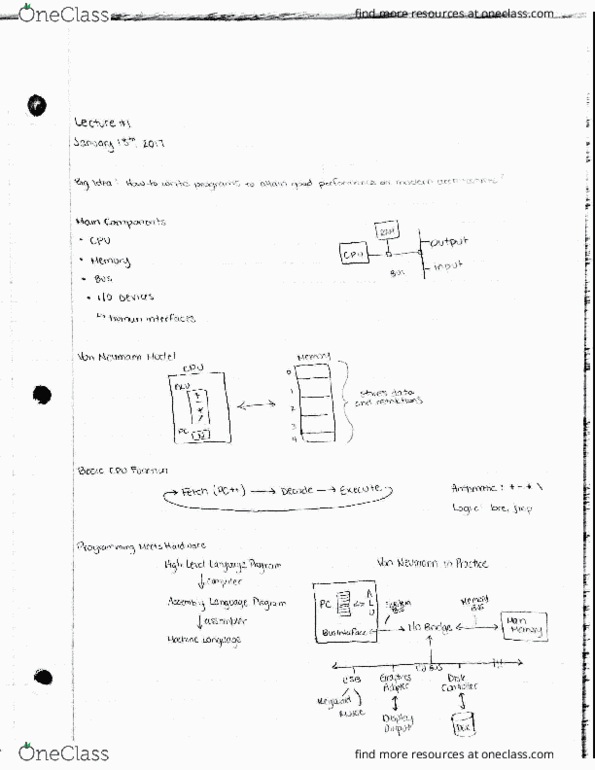 OneClass
find more resources at oneclass.com
Lecture #1
January 13th, 2017
Big Idea: How to write programs to attain good performance on modern architectures
Main Components
• CPU
• Memory
• Bus
• I/O Devices
↳ Human interfaces
CPU
Bus
output
input
Von Neumann Model
CPU
ALU
PC
Memory
0
1
2
3
4
stores data and
Basic CPU Function
→ Fetch (PC++) → Decode → Execute
Arithmetic: + - * \
Logic:
Programming Meets Hardware
High Level Language Program
↓ compiler
Assembly Language Program
↓ assembler
Machine Language
Von Neumann in Practice
PC
ALU
Bus Interface
System Bus
I/O Bridge
Memory Bus
Main Memory
I/O Bus
USB
Graphics Adapter
Disk Controller
Keyboard
Mouse
Display Output
Disk
OneClass
find more resources at oneclass.com